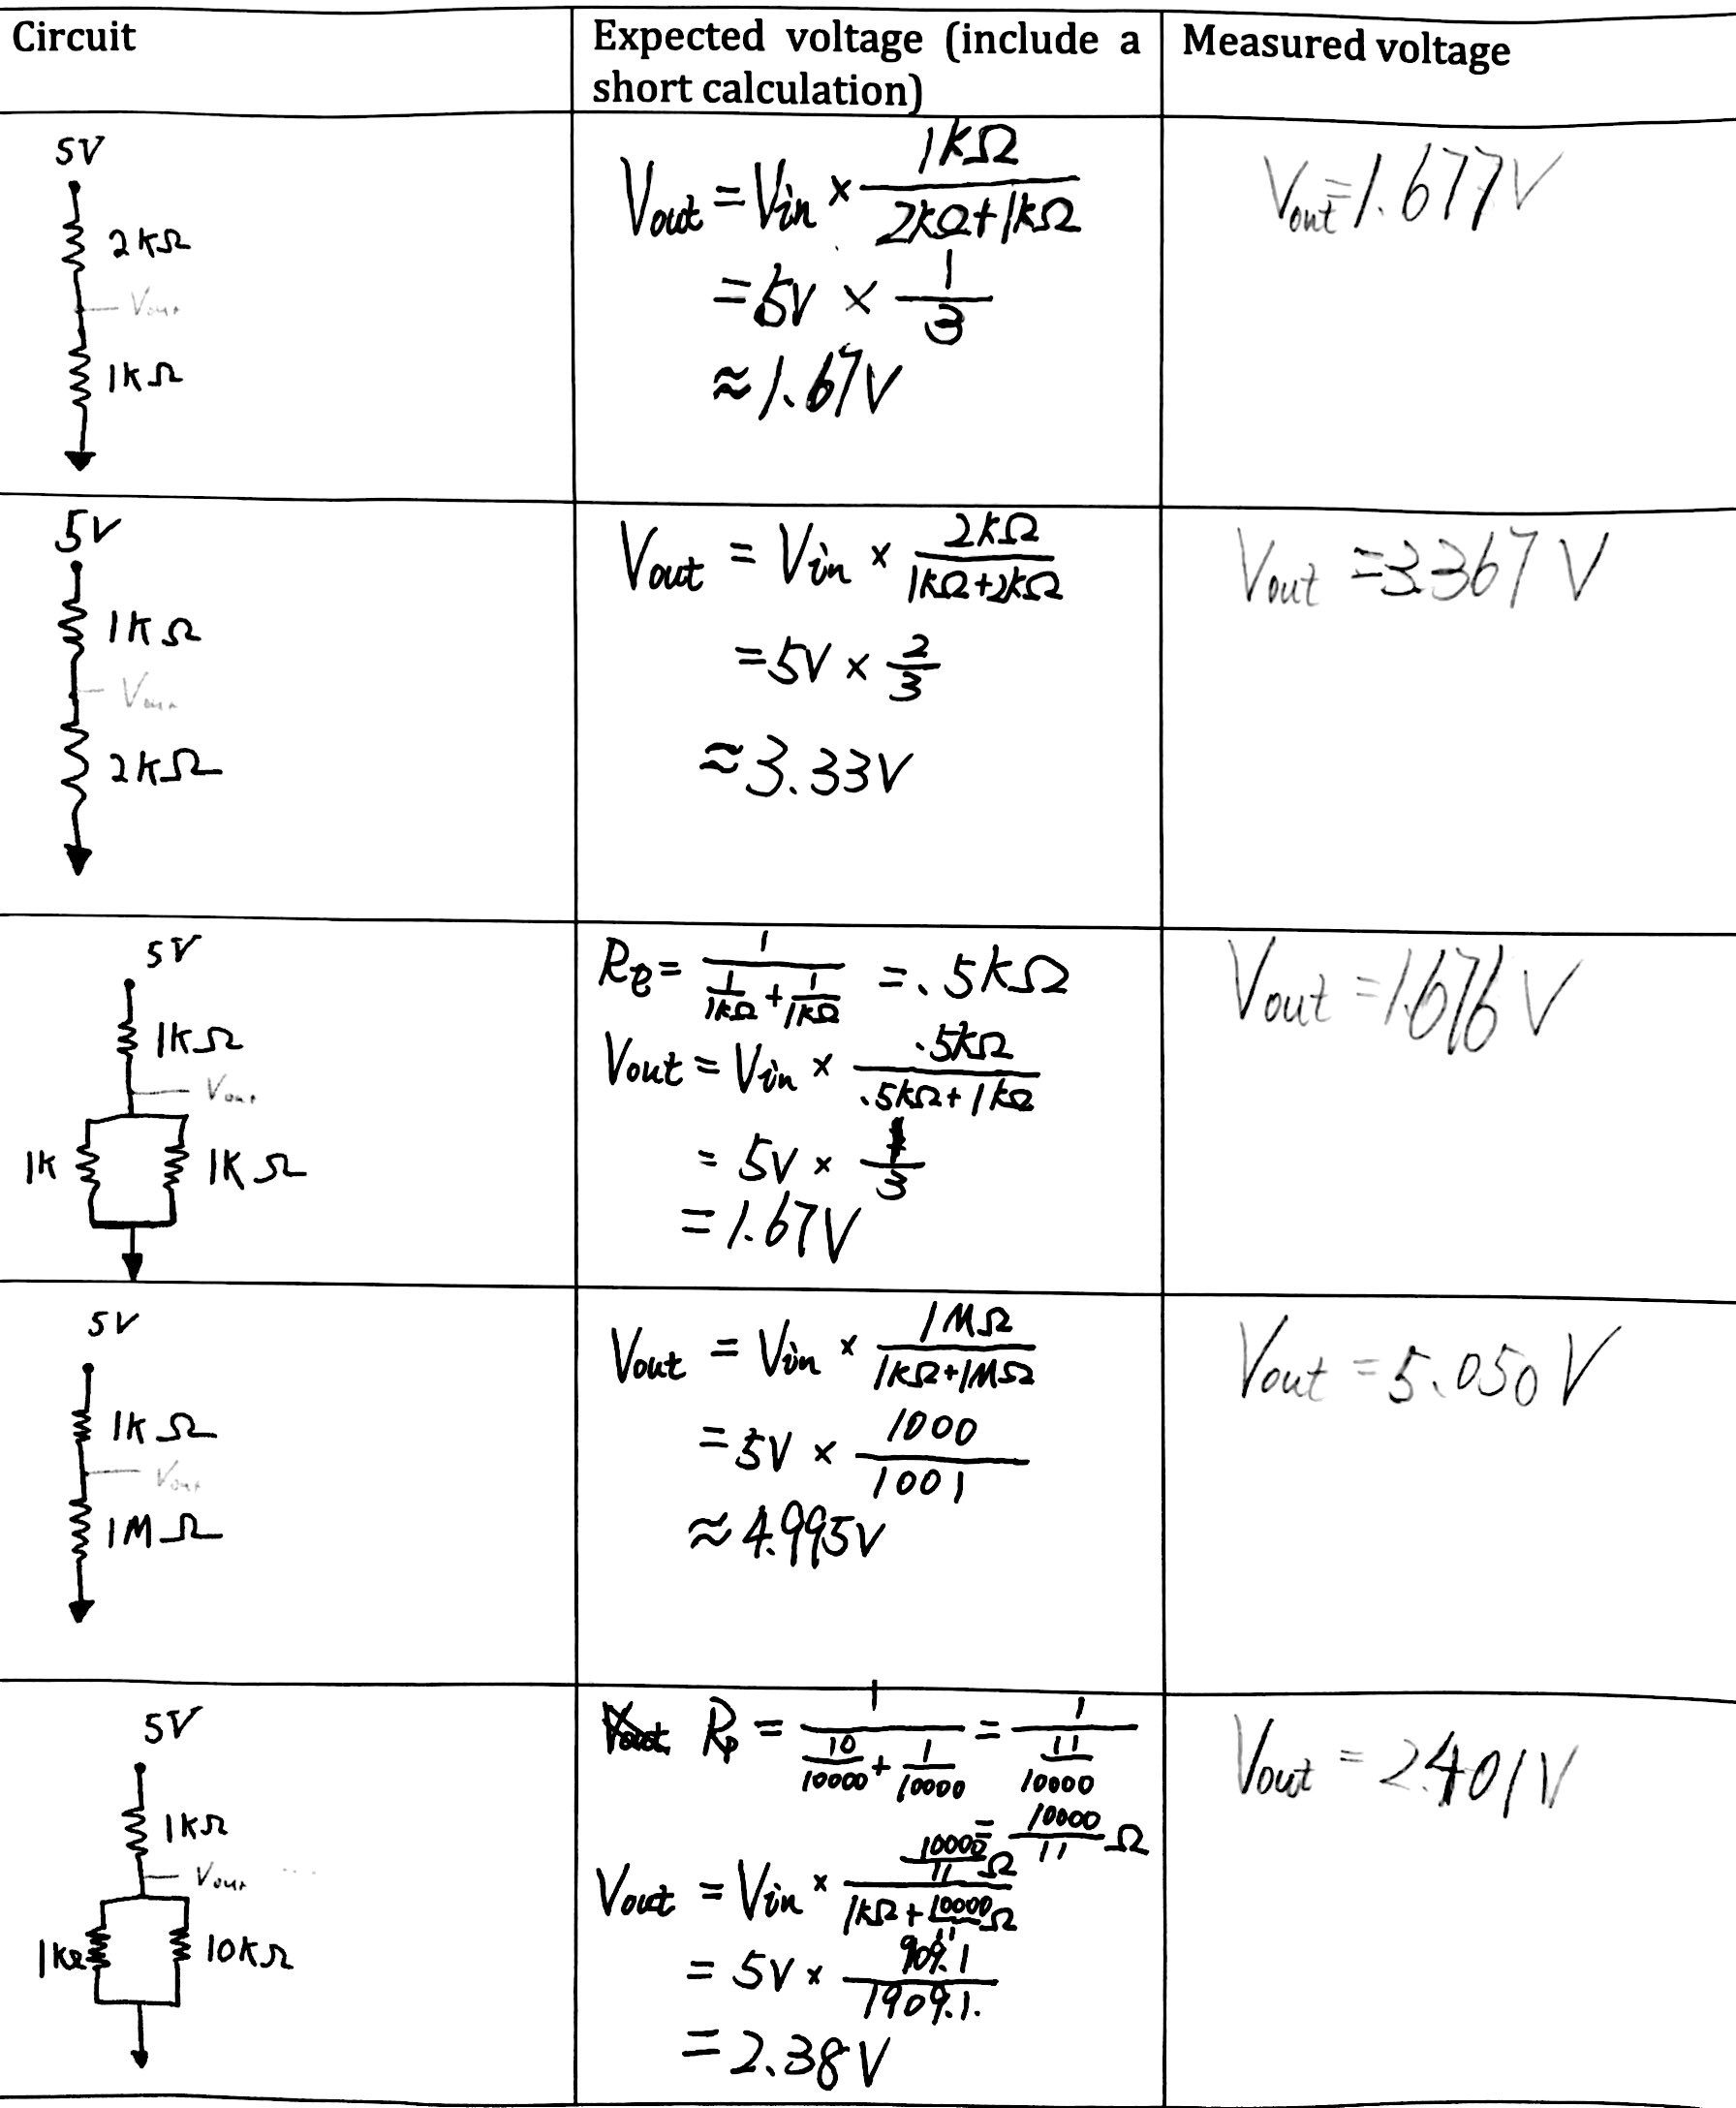 Circuit
Expected voltage (include a
short calculation)
Measured voltage
5V
2kΩ
Vout
1kΩ
Vout = Vin × 1kΩ / 2kΩ+1kΩ
= 5V × 1/3
≈ 1.67V
Vout = 1.677V
5V
1kΩ
Vout
2kΩ
Vout = Vin × 2kΩ / 1kΩ+2kΩ
= 5V × 2/3
≈ 3.33V
Vout = 3.367 V
5V
1kΩ
Vout
1k
1kΩ
Re = 1 / 1/1kΩ + 1/1kΩ = .5kΩ
Vout = Vin × .5kΩ / .5kΩ+1kΩ
= 5V × 1/3
= 1.67V
Vout = 1.676 V
5V
1kΩ
Vout
1MΩ
Vout = Vin × 1MΩ / 1kΩ+1MΩ
= 5V × 1000 / 1001
≈ 4.995V
Vout = 5.050 V
5V
1kΩ
Vout
1kΩ
10kΩ
Rp = 1 / 10/10000 + 1/10000 = 1 / 11/10000
= 10000/11 Ω
Vout = Vin × 10000/11 Ω / 1kΩ + 10000/11 Ω
= 5V × 909.1 / 1909.1
= 2.38V
Vout = 2.401V